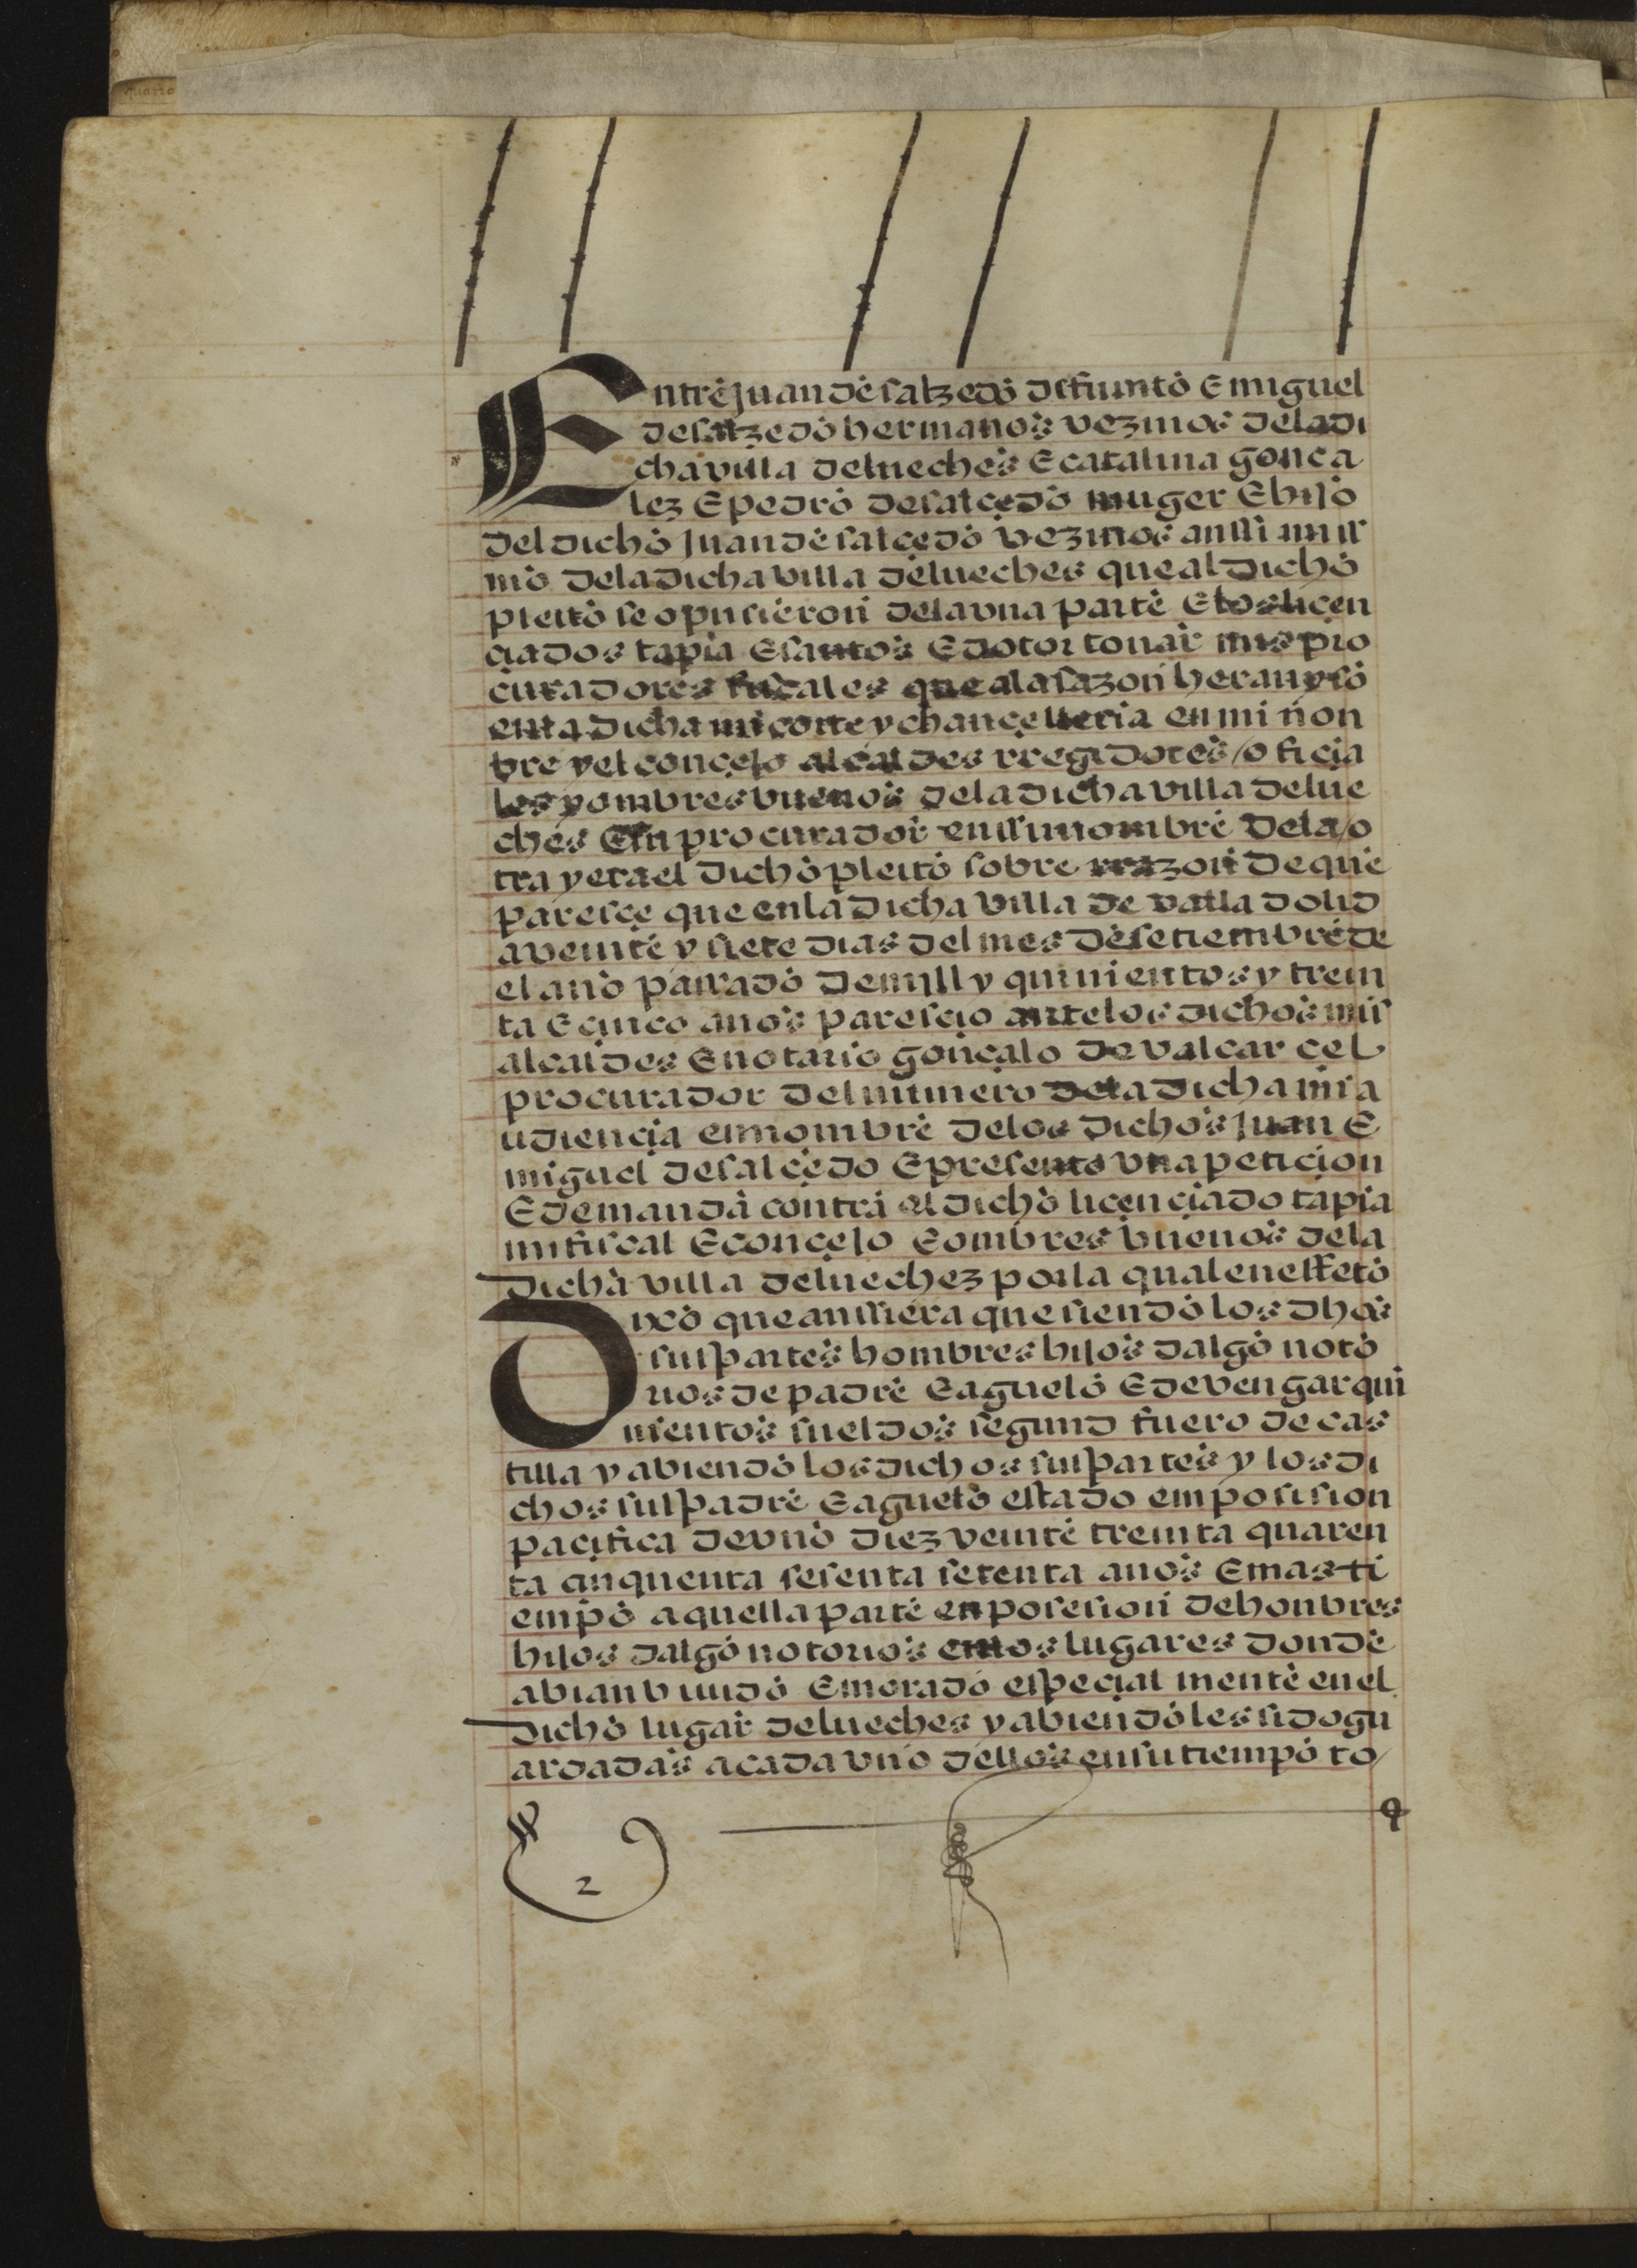 Entre juan de salzedo defunto E miguel
de salzedo hermanos vezinos dela di
cha villa delueches E catalina gonca
lez E pedro de salçedo muger E hijo
del dicho juan de salçedo vezinos anssi miss
mo dela dicha villa delueches que al dicho
pleito se opusieron dela vna parte E los licen
çiados tapia E santos E dotor touar mis pro
curadores fiscales que ala sazon heran y so
enla dicha mi corte y chançelleria en mi non
bre y el conçejo alcaldes rregidores / ofiçia
les y ombres buenos dela dicha villa delue
ches E su procurador en su nombre dela / o
tra y era el dicho pleito sobre rrazon de que
paresçe que enla dicha villa de valladolid
a veinte y siete dias del mes de setiembre de
el año passado de mill y quinientos y trein
ta E çinco años paresçio antelos dichos mis
alcaldes E notario gonçalo de valcarcel
procurador del numero dela dicha mi a
udiençia en nombre delos dichos juan E
miguel de salçedo E presento vna petiçion
E demanda contra el dicho liçençiado tapia
mi fiscal E conçejo E ombres buenos dela
dicha villa deluechez por la qual en effeto
Dixo que anssi era que siendo los dhos
sus partes hombres hijos dalgo noto
rios de padre E aguelo E devengar qui
nientos sueldos segund fuero de cas
tilla y abiendo los dichos sus partes y los di
chos sus padre E aguelo estado en posision
paçifica de vno diez veinte treinta quaren
ta çinquenta sesenta setenta años E mas ti
empo aquella parte en posesion de honbres
hijos dalgo notorios en los lugares donde
abian biuido E morado espeçial mente en el
dicho lugar delueches y abiendoles sido gu
ardadas a cada vno dellos en su tiempo to
2